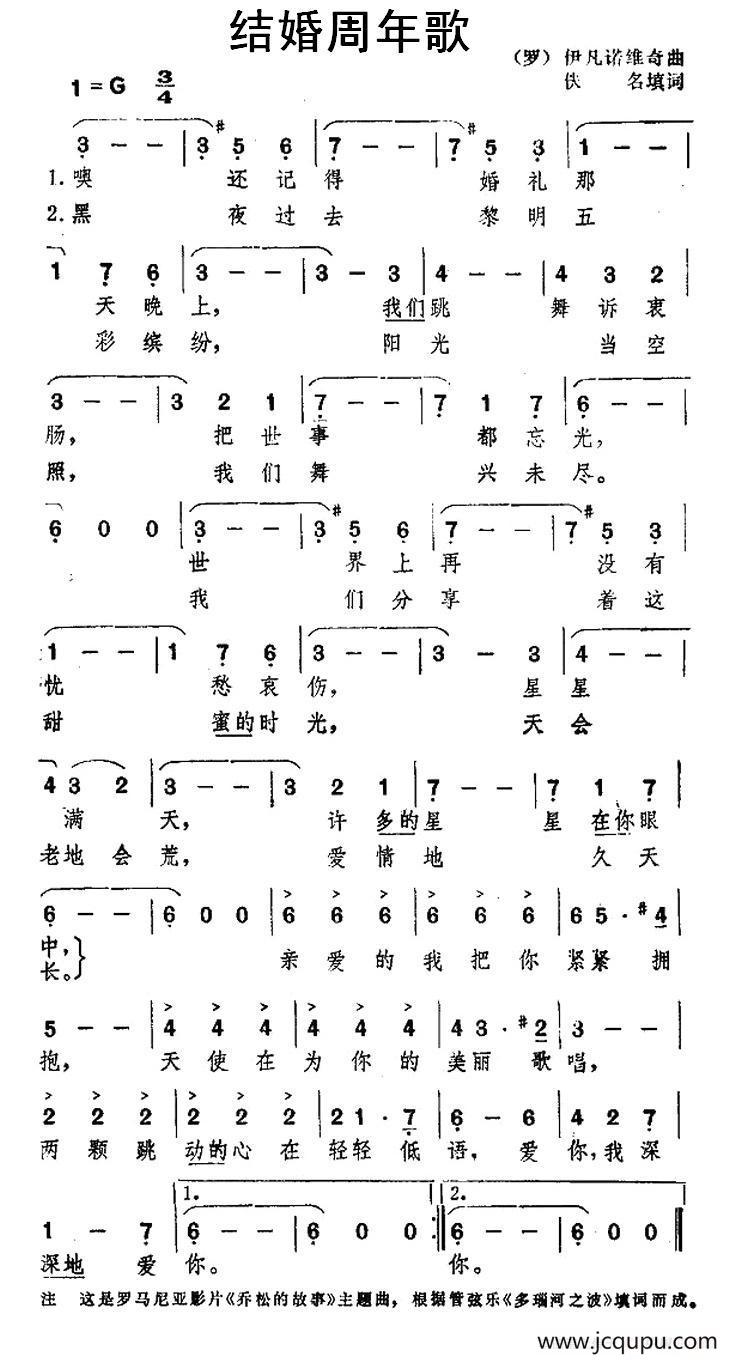 结婚周年歌
（罗）伊凡诺维奇曲
1=G 3/4 佚 名填词
3 - - | 3 #5 6 | 7 - - | 7 #5 3 | 1 - - |
1.噢 还记得 婚礼那
2.黑 夜过去 黎明五
1 7 6 | 3 - - | 3 - 3 | 4 - - | 4 3 2 |
天晚上， 我们跳 舞诉衷
彩缤纷， 阳光 当空
3 - - | 3 2 1 | 7 - - | 7 1 7 | 6 - - |
肠， 把世事 都忘光，
照， 我们舞 兴未尽。
6 0 0 | 3 - - | 3 #5 6 | 7 - - | 7 #5 3 |
世 界上再 没有
我 们分享 着这
1 - - | 1 7 6 | 3 - - | 3 - 3 | 4 - - |
忧 愁哀伤， 星星
甜 蜜的时光， 天会
4 3 2 | 3 - - | 3 2 1 | 7 - - | 7 1 7 |
满 天， 许多的星 星在你眼
老地会荒， 爱情地 久天
6 - - | 6 0 0 | 6 6 6 | 6 6 6 | 6 5 · #4 |
中，
长。} 亲爱的我把你紧紧拥
5 - - | 4 4 4 | 4 4 4 | 4 3 · #2 | 3 - - |
抱， 天使在为你的美丽歌唱，
2 2 2 | 2 2 2 | 2 1 · 7 | 6 - 6 | 4 2 7 |
两颗跳动的心在轻轻低语，爱你，我深
1. 2.
1 - 7 | 6 - - | 6 0 0 :‖ 6 - - | 6 0 0 ‖
深地爱你。 你。
注 这是罗马尼亚影片《乔松的故事》主题曲，根据管弦乐《多瑙河之波》填词而成。
www.jcqupu.com